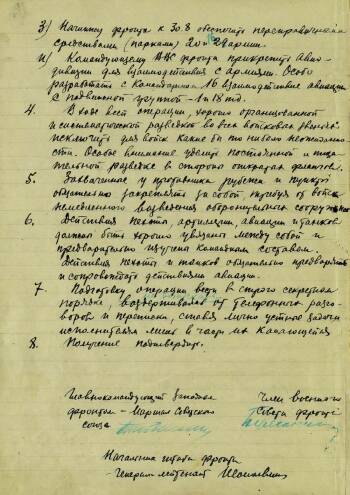 3) Начинжу фронта к 30.8 обеспечить переправочными
средствами (парками) 20 и 24 армии.
и) Командующему ВВС фронта прикрепить авиа-
дивизии для взаимодействия с армиями. Особо
разработать с Командармом 16 взаимодействие авиации
с подвижной группой – 1 и 18 тд.
4. В ходе всей операции, хорошо организованной
и систематической разведкой во всех войсковых звеньях
исключить для войск какие бы то ни было неожиданно-
сти. Особое внимание уделить постоянной и тща-
тельной разведке в сторону открытых флангов.
5. Захваченные у противника рубежи и пункты
обязательно закреплять за собой, требуя от войск
немедленного возведения оборонительных сооружений
6. Действия пехоты, артиллерии, авиации и танков
должны быть хорошо увязаны между собой и
предварительно изучены командным составом.
Действия пехоты и танков обязательно предварять
и сопровождать действиями авиации.
7. Подготовку операции вести в строго секретном
порядке, воздерживаясь от телефонных разго-
воров и переписки, ставя лично устно задачи
исполнителям лишь в части их касающейся
8. Получение подтвердить.
Главнокомандующий Западным
фронтом – Маршал Советского
Союза
Член военного
Совета фронта
Начальник штаба фронта
Генерал-лейтенант